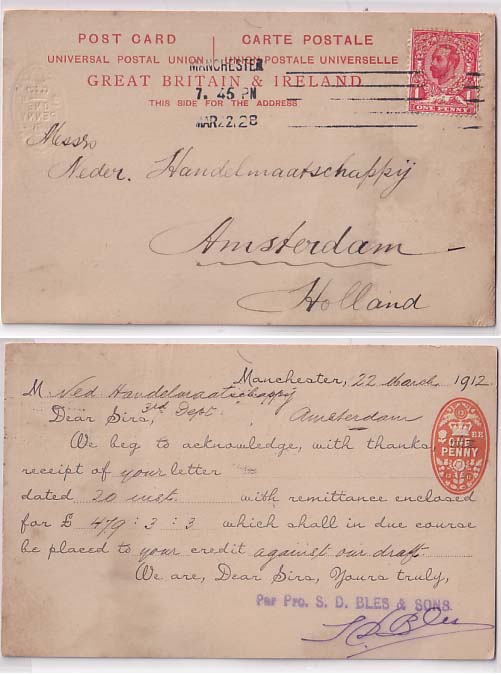 POST CARD CARTE POSTALE
UNIVERSAL POSTAL UNION UNION POSTALE UNIVERSELLE
GREAT BRITAIN & IRELAND
THIS SIDE FOR THE ADDRESS
MANCHESTER
7. 45 PM
MAR 22. 28
ONE PENNY
Messrs
Neder. Handelmaatschappij
Amsterdam
Holland
Manchester, 22 March 1912
M Ned Handelmaatschappij
Dear Sirs, 3rd Dept. Amsterdam
We beg to acknowledge, with thanks
receipt of your letter
dated 20 inst. with remittance enclosed
for £ 479 : 3 : 3 which shall in due course
be placed to your credit against our draft
We are, Dear Sirs, Yours truly,
Per Pro. S. D. BLES & SONS.
S D Bles
ONE
PENNY